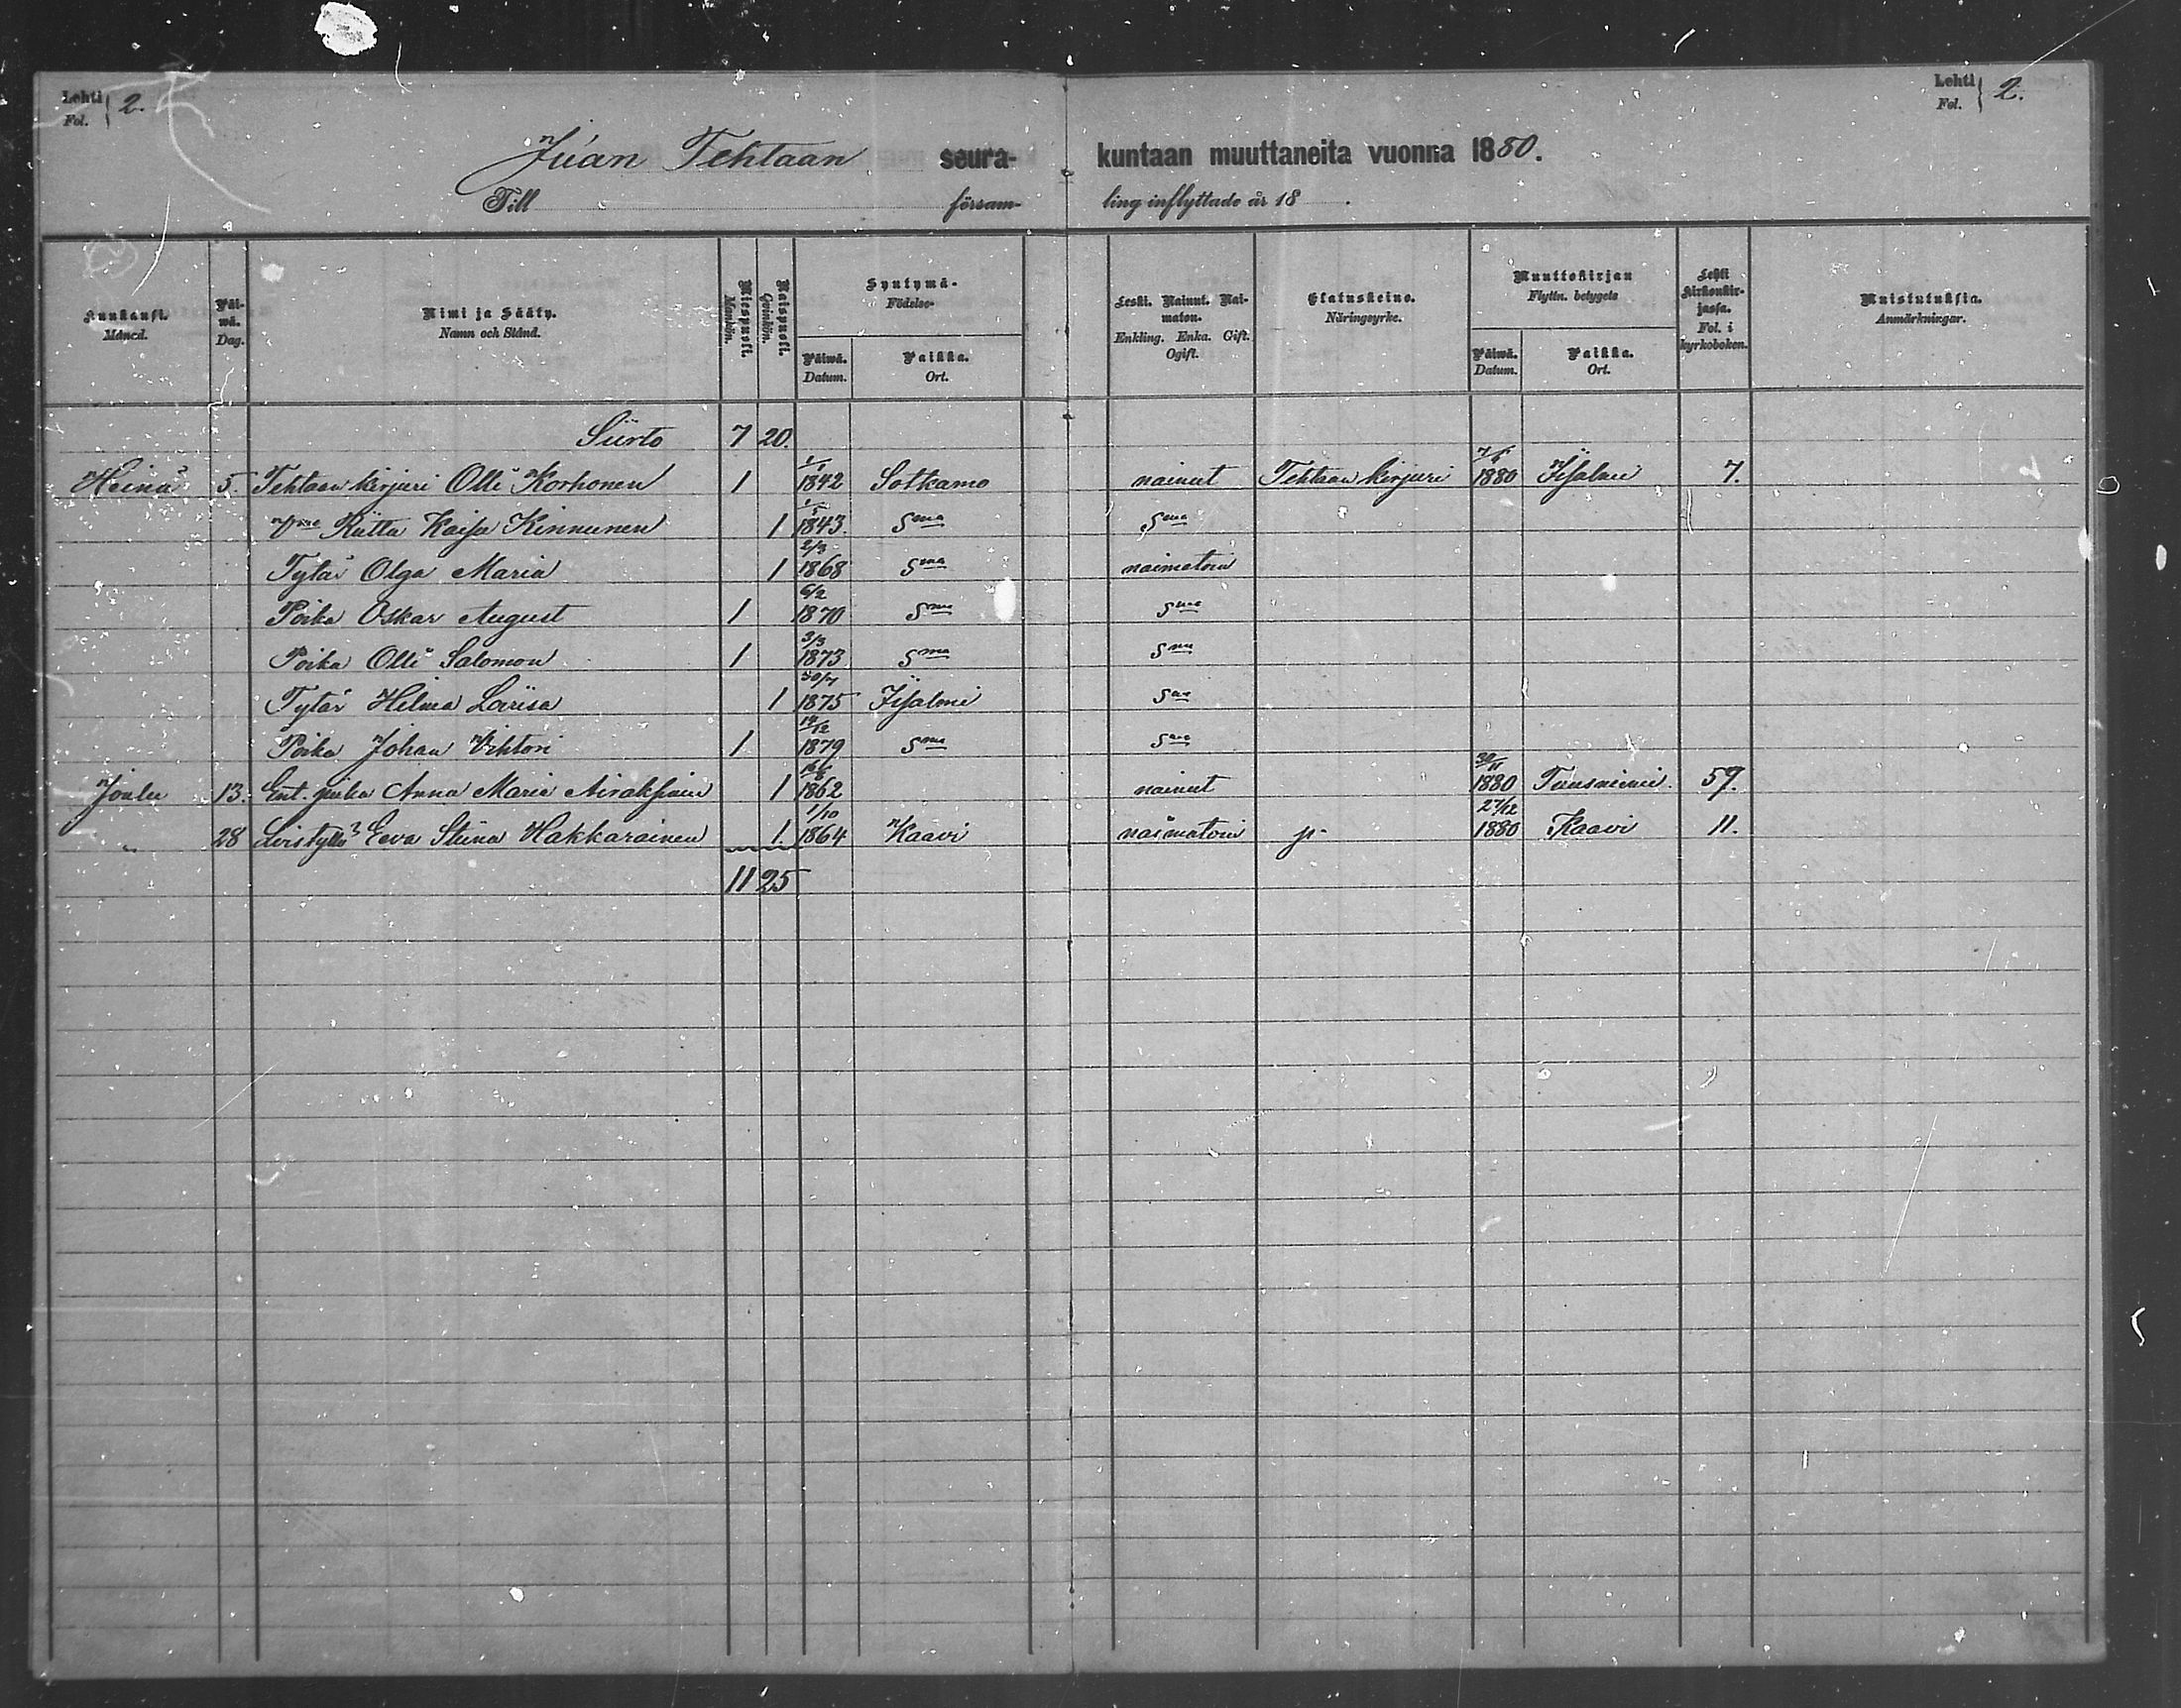 Lehti Fol. 2.
Lehti Fol. 2.
Juan Tehtaan seura- kuntaan muuttaneita vuonna 1880.
Till församling inflyttade år 18 .
Kuukausi. Månad.
Päiwä. Dag.
Nimi ja Sääty. Namn och Stånd.
Miespuoli. Mankön.
Naispuoli. Qvinkön.
Syntymä- Födelse-
Päiwä. Datum.
Paikka. Ort.
Leski. Nainut. Naimaton. Enkling. Enka. Gift. Ogift.
Elatuskeino. Näringsyrke.
Muuttokirjan Flyttn. betygets
Päiwä. Datum.
Paikka. Ort.
Lehti kirkonkirjassa. Fol. i kyrkoboken.
Muistutuksia. Anmärkningar.
Siirto 7 20.
Heinä 5. Tehtaan kirjuri Olli Korhonen 1 1/1 1842 Sotkamo nainut Tehtaan kirjuri 1880 Iisalmi 7.
Riitta Kaisa Kinnunen 1 1843. Sma Sma
Tytär Olga Maria 1 2/3 1868 Sma naimatoin
Poika Oskar August 1 6/2 1870 Sma Sma
Poika Olli Salomon 1 3/3 1873 Sma Sma
Tytär Hilma Loviisa 1 30/7 1875 Iisalmi Sma
Poika Johan Vihtori 1 14/12 1879 Sma Sma
Joulu 13. Ent. piika Anna Maria Airaksinen 1 1862 nainut 30/11 1880 Tuusniemi. 59.
" 28 Eeva Stiina Hakkarainen 1. 1/10 1864 Kaavi naimatoin 27/12 1880 Kaavi 11.
11 25